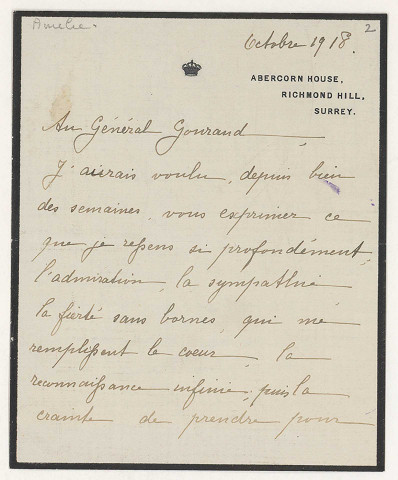 Amelie.
2
Octobre 1918.
ABERCORN HOUSE,
RICHMOND HILL,
SURREY.
Au Général Gouraud,
J'aurais voulu, depuis bien
des semaines, vous exprimer ce
que je ressens si profondément,
l'admiration, la sympathie
la fierté sans bornes, qui me
remplissent le coeur, la
reconnaissance infinie; puis la
crainte de prendre pour